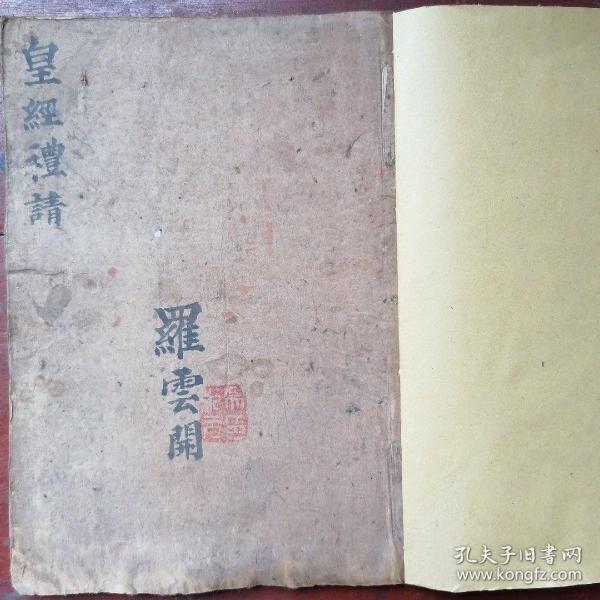 皇經禮請
羅雲開
孔夫子旧書网
www.kongfz.com